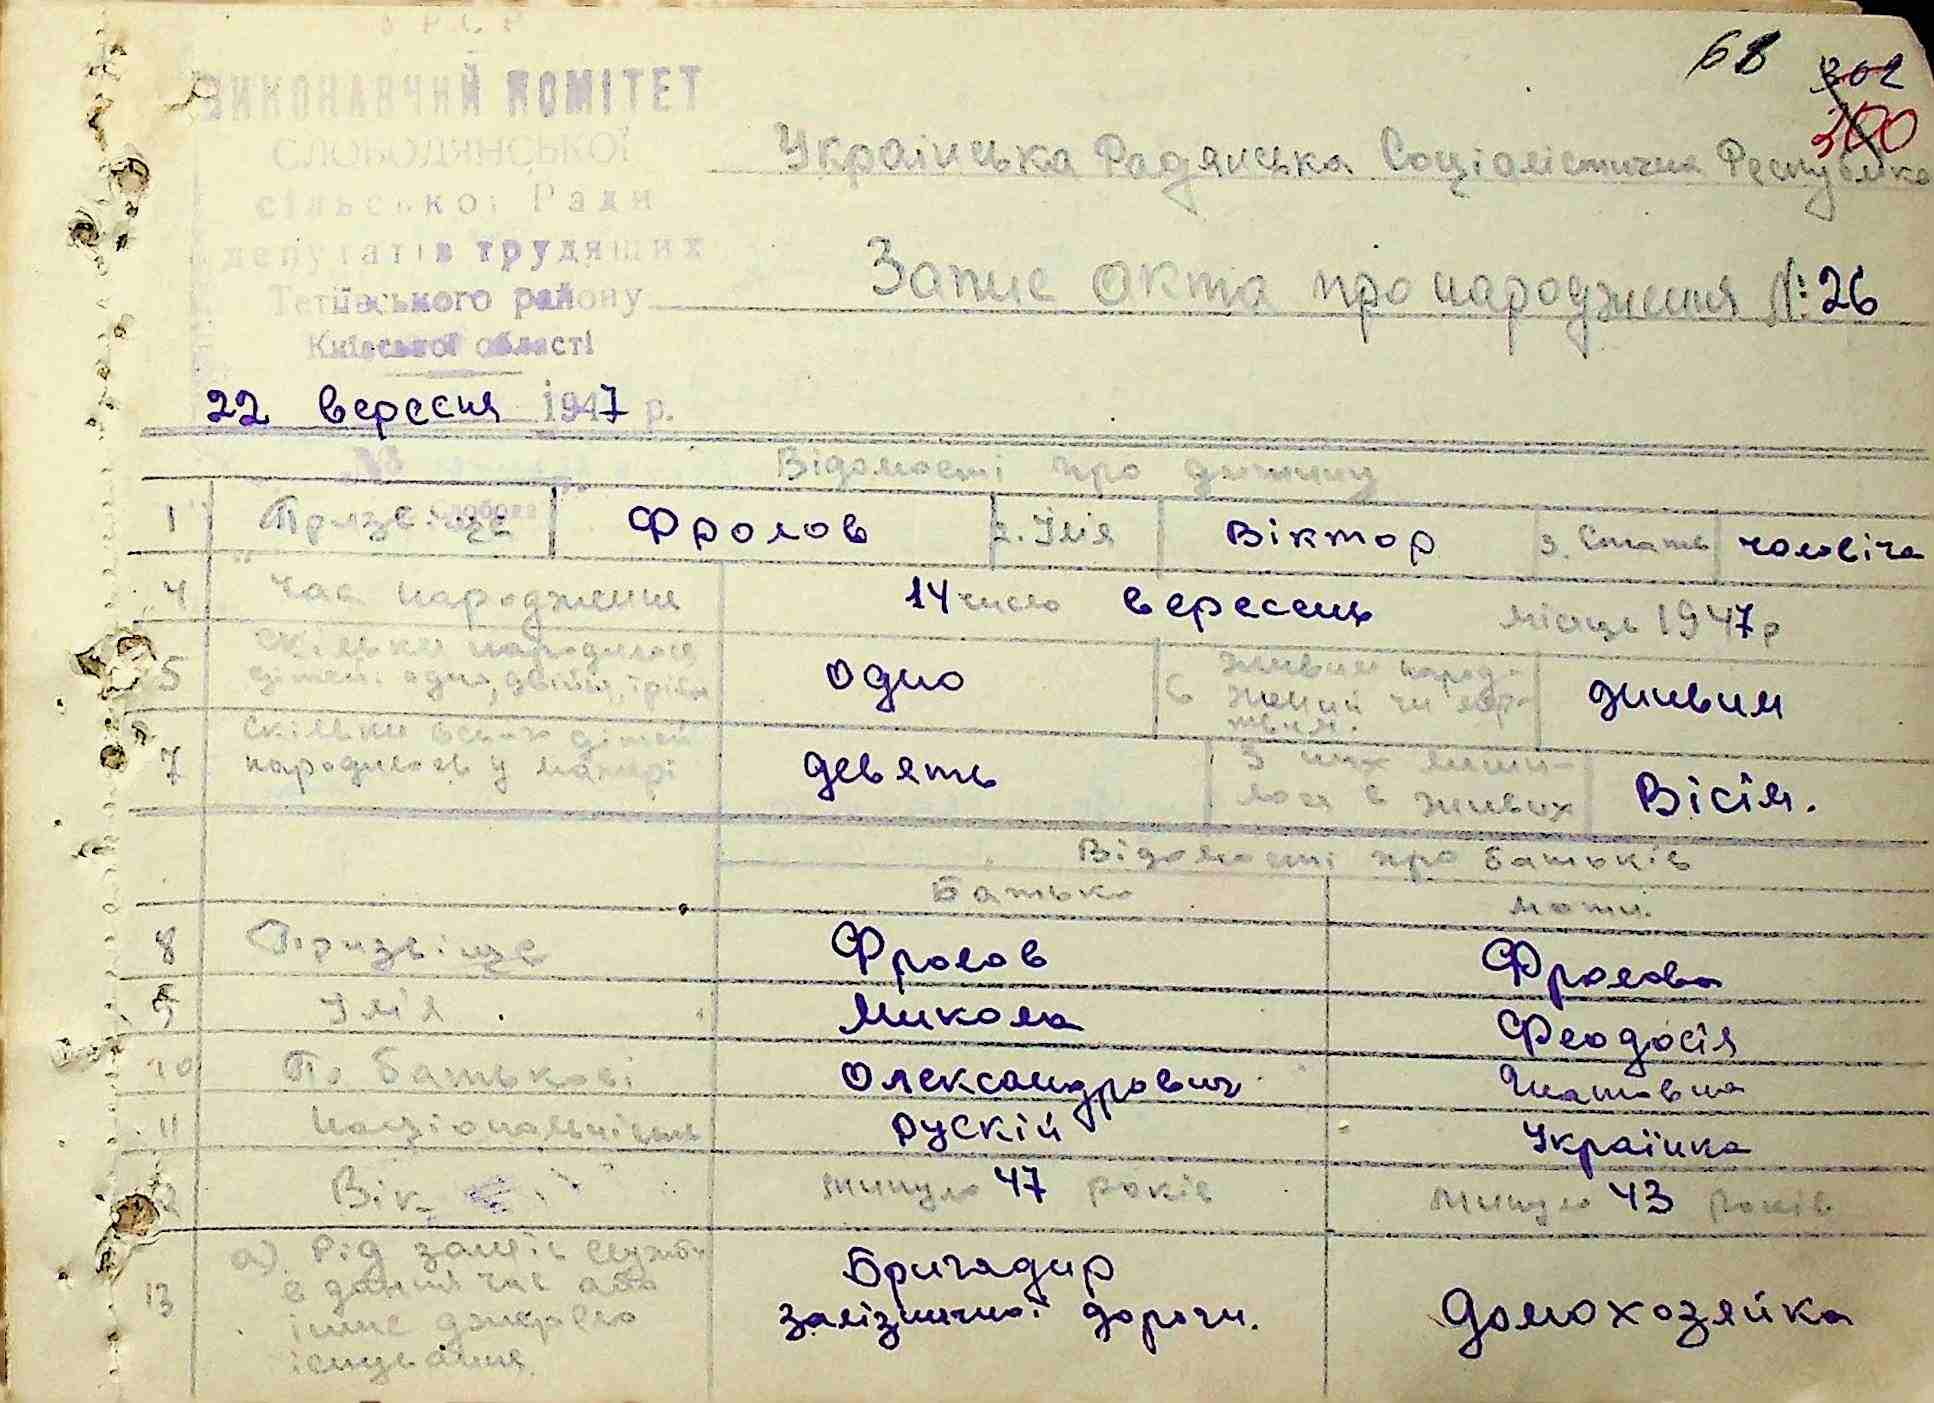 УРСР
ВИКОНАВЧИЙ КОМІТЕТ
СЛОБОДЯНСЬКОЇ
сільської Ради
депутатів трудящих
Тетіївського району
Київської області
68
302
300
Українська Радянська Соціалістична Республіка
Запис акта про народження №: 26
22 вересня 1947 р.
Відомості про дитину
1 Призвіще Фролов 2. Імя Віктор 3. Стать чоловіча
4 Час народження 14 число вересень місяць 1947 р
5 Скільки народилося дітей: одно, двійня, трійня одно 6 Живим народжений чи мертвим. живим
7 Скільки всього дітей народилось у матері девять З них лишилося в живих Вісім.
Відомості про батьків
Батько Мати.
8 Призвіще Фролов Фролова
9 Імя Микола Феодосія
10 По батькові Олександрович Гнатовна
11 Національність Рускій Українка
12 Вік минуло 47 років минуло 43 років
13 а) Рід занять служби в даний час або інше джерело існування Бригадир залізничної дороги. Домохозяйка